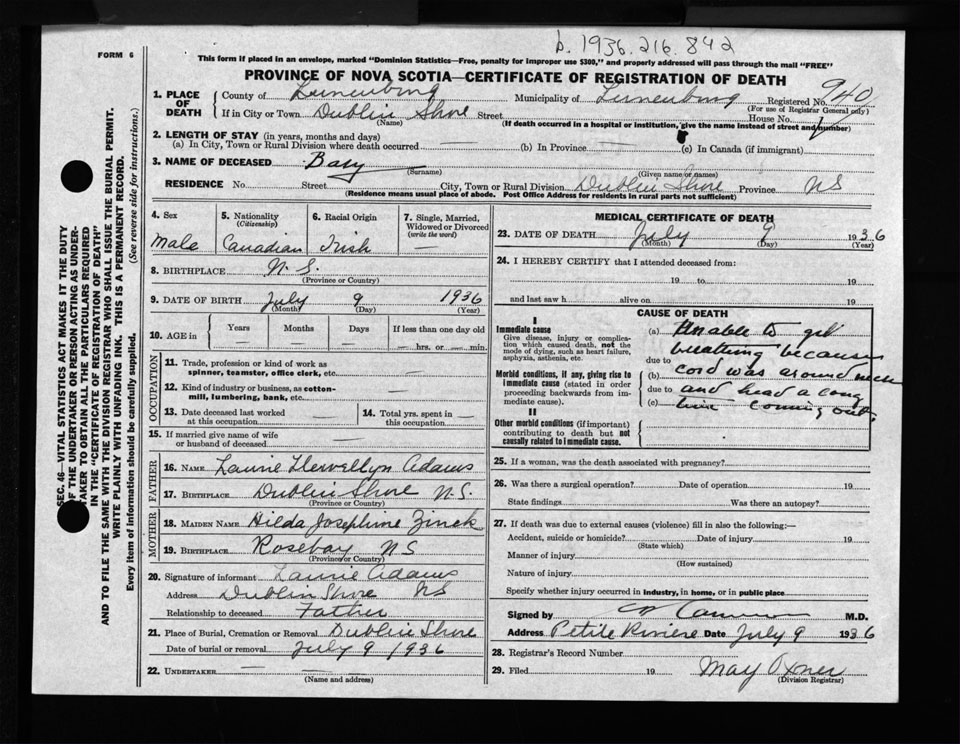 b. 1936. 216. 842
FORM 6
This form if placed in an envelope, marked "Dominion Statistics—Free, penalty for improper use $300," and properly addressed will pass through the mail "FREE"
PROVINCE OF NOVA SCOTIA—CERTIFICATE OF REGISTRATION OF DEATH
SEC. 46—VITAL STATISTICS ACT MAKES IT THE DUTY
OF THE UNDERTAKER OR PERSON ACTING AS UNDER-
TAKER TO OBTAIN ALL THE PARTICULARS REQUIRED
IN THE "CERTIFICATE OF REGISTRATION OF DEATH"
AND TO FILE THE SAME WITH THE DIVISION REGISTRAR WHO SHALL ISSUE THE BURIAL PERMIT.
WRITE PLAINLY WITH UNFADING INK. THIS IS A PERMANENT RECORD.
Every item of information should be carefully supplied. (See reverse side for instructions.)
1. PLACE OF DEATH
County of Lunenburg Municipality of Lunenburg Registered No. 940
(For use of Registrar General only)
If in City or Town Dublin Shore Street House No.
(Name) (If death occurred in a hospital or institution, give the name instead of street and number)
2. LENGTH OF STAY (in years, months and days)
(a) In City, Town or Rural Division where death occurred — (b) In Province — (c) In Canada (if immigrant)
3. NAME OF DECEASED Baby
(Surname) (Given name or names)
RESIDENCE No. Street City, Town or Rural Division Dublin Shore Province NS
(Residence means usual place of abode. Post Office Address for residents in rural parts not sufficient)
4. Sex Male
5. Nationality (Citizenship) Canadian
6. Racial Origin Irish
7. Single, Married, Widowed or Divorced (write the word)
8. BIRTHPLACE N. S.
(Province or Country)
9. DATE OF BIRTH July 9 1936
(Month) (Day) (Year)
10. AGE in Years — Months — Days — If less than one day old — hrs. or — min.
OCCUPATION
11. Trade, profession or kind of work as spinner, teamster, office clerk, etc. —
12. Kind of industry or business, as cotton-mill, lumbering, bank, etc. —
13. Date deceased last worked at this occupation —
14. Total yrs. spent in this occupation —
15. If married give name of wife or husband of deceased —
FATHER
16. NAME Laurie Llewellyn Adams
17. BIRTHPLACE Dublin Shore N.S.
(Province or Country)
MOTHER
18. MAIDEN NAME Hilda Josephine Zinck
19. BIRTHPLACE Rosebay NS
(Province or Country)
20. Signature of informant Laurie Adams
Address Dublin Shore NS
Relationship to deceased Father
21. Place of Burial, Cremation or Removal Dublin Shore
Date of burial or removal July 9 1936
22. UNDERTAKER —
(Name and address)
MEDICAL CERTIFICATE OF DEATH
23. DATE OF DEATH July 9 1936
(Month) (Day) (Year)
24. I HEREBY CERTIFY that I attended deceased from:
19 to 19
and last saw h alive on 19
CAUSE OF DEATH
I
Immediate cause
Give disease, injury or complication which caused death, not the mode of dying, such as heart failure, asphyxia, asthenia, etc.
Morbid conditions, if any, giving rise to immediate cause (stated in order proceeding backwards from immediate cause).
II
Other morbid conditions (if important) contributing to death but not causally related to immediate cause.
(a) Unable to get
breathing because
due to
(b) cord was around neck
due to and head a long
(c) time coming out
25. If a woman, was the death associated with pregnancy?
26. Was there a surgical operation? Date of operation 19
State findings Was there an autopsy?
27. If death was due to external causes (violence) fill in also the following:—
Accident, suicide or homicide? Date of injury 19
(State which)
Manner of injury
(How sustained)
Nature of injury
Specify whether injury occurred in industry, in home, or in public place
Signed by Cameron M.D.
Address Petite Riviere Date July 9 1936
28. Registrar's Record Number
29. Filed 19 May Oxner
(Division Registrar)